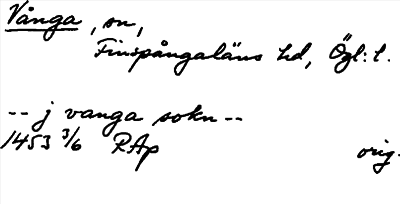 Vånga, sn,
Finspångaläns hd, Ögl: l.
-- j vanga sokn --
1453 3/6 RAp orig.